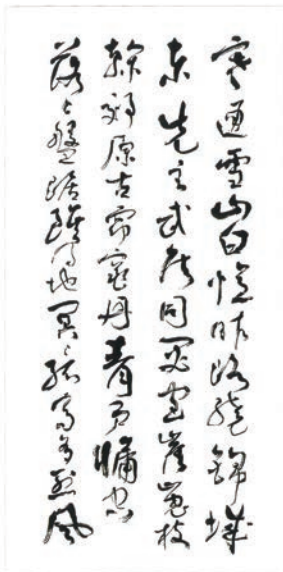 寒通雪山白憶昨路繞錦城
東先主武侯同閟宮崔嵬枝
幹郊原古窈窕丹青戶牖空
落々盤踞雖得地冥々孤高多烈風